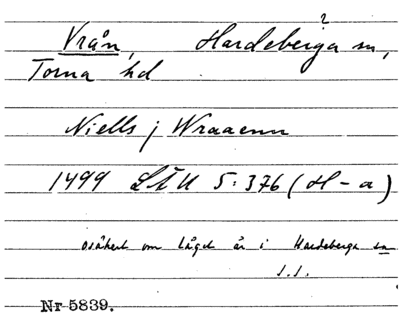 ?
Vrån, Hardeberga sn,
Torna hd
Niells j Wraaenn
1499 LÄU 5:376 (H-a)
osäkert om läget är i Hardeberga sn
S.I.
Nr 5839.